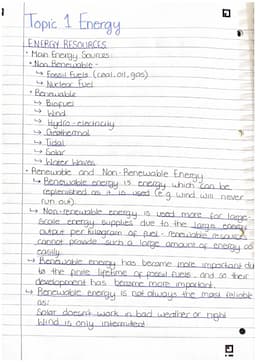 Topic 1 Energy
ENERGY RESOURCES
• Main Energy Sources:
• Non Renewable -
↳ Fossil Fuels (coal, oil, gas)
↳ Nuclear Fuel
• Renewable
↳ Biofuel
↳ Wind
↳ Hydro-electricity
↳ Geothermal
↳ Tidal
↳ Solar
↳ Water Waves
• Renewable and Non-Renewable Energy
↳ Renewable energy is energy which can be
replenished as it is used (e.g. wind will never
run out).
↳ Non-renewable energy is used more for large-
scale energy supplies due to the large energy
output per kilogram of fuel - renewable resources
cannot provide such a large amount of energy as
easily.
↳ Renewable energy has become more important du
to the finite lifetime of fossil fuels, and so their
development has become more important.
↳ Renewable energy is not always the most reliable
as:
Solar doesn't work in bad weather or night
Wind is only intermittent